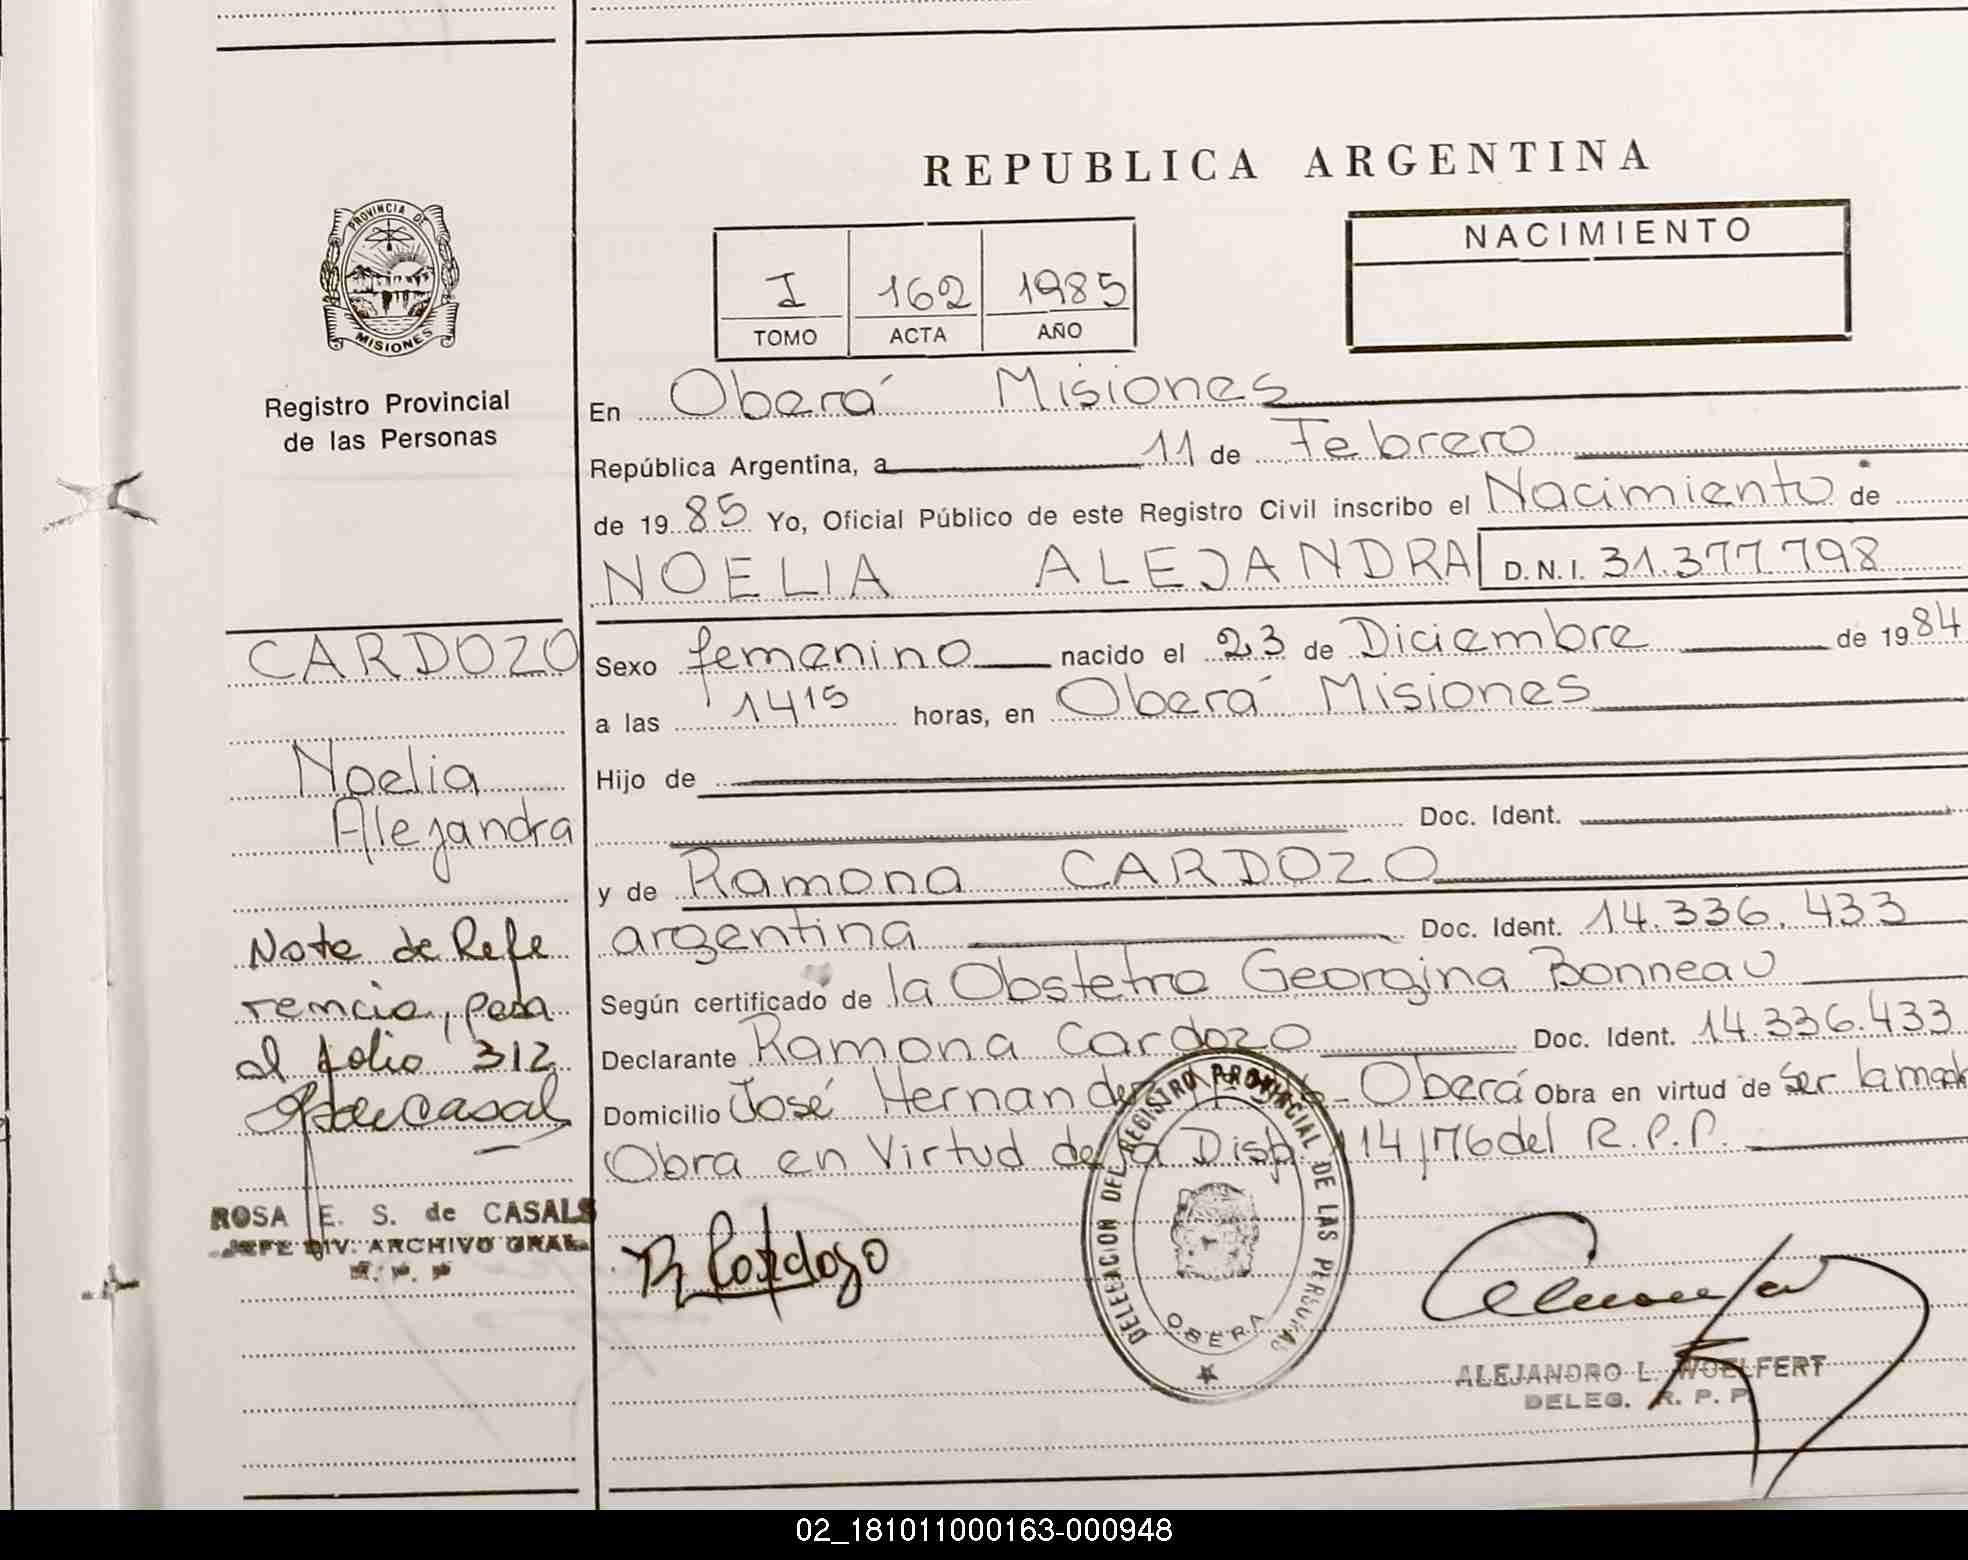 REPUBLICA ARGENTINA
PROVINCIA DE
MISIONES
Registro Provincial
de las Personas
I 162 1985
TOMO ACTA AÑO
NACIMIENTO
En Oberá Misiones
República Argentina, a 11 de Febrero
de 19 85 Yo, Oficial Público de este Registro Civil inscribo el Nacimiento de
NOELIA ALEJANDRA D.N.I. 31.377.798
CARDOZO
Noelia
Alejandra
Sexo femenino nacido el 23 de Diciembre de 19 84
a las 14 15 horas, en Oberá Misiones
Hijo de
Doc. Ident.
y de Ramona CARDOZO
argentina Doc. Ident. 14.336.433
Según certificado de la Obstetra Georgina Bonneau
Declarante Ramona Cardozo Doc. Ident. 14.336.433
Domicilio José Hernandez - Oberá Obra en virtud de Ser la madre
Obra en Virtud de la Disp. 114/76 del R.P.P.
Nota de Refe
rencia, pasa
al folio 312
ROSA E. S. de CASALS
JEFE DIV. ARCHIVO GRAL.
R. P. P
R Cardozo
DELEGACION DEL REGISTRO PROVINCIAL DE LAS PERSONAS
OBERA
ALEJANDRO L. WOELFERT
DELEG. R. P. P.
02_181011000163-000948